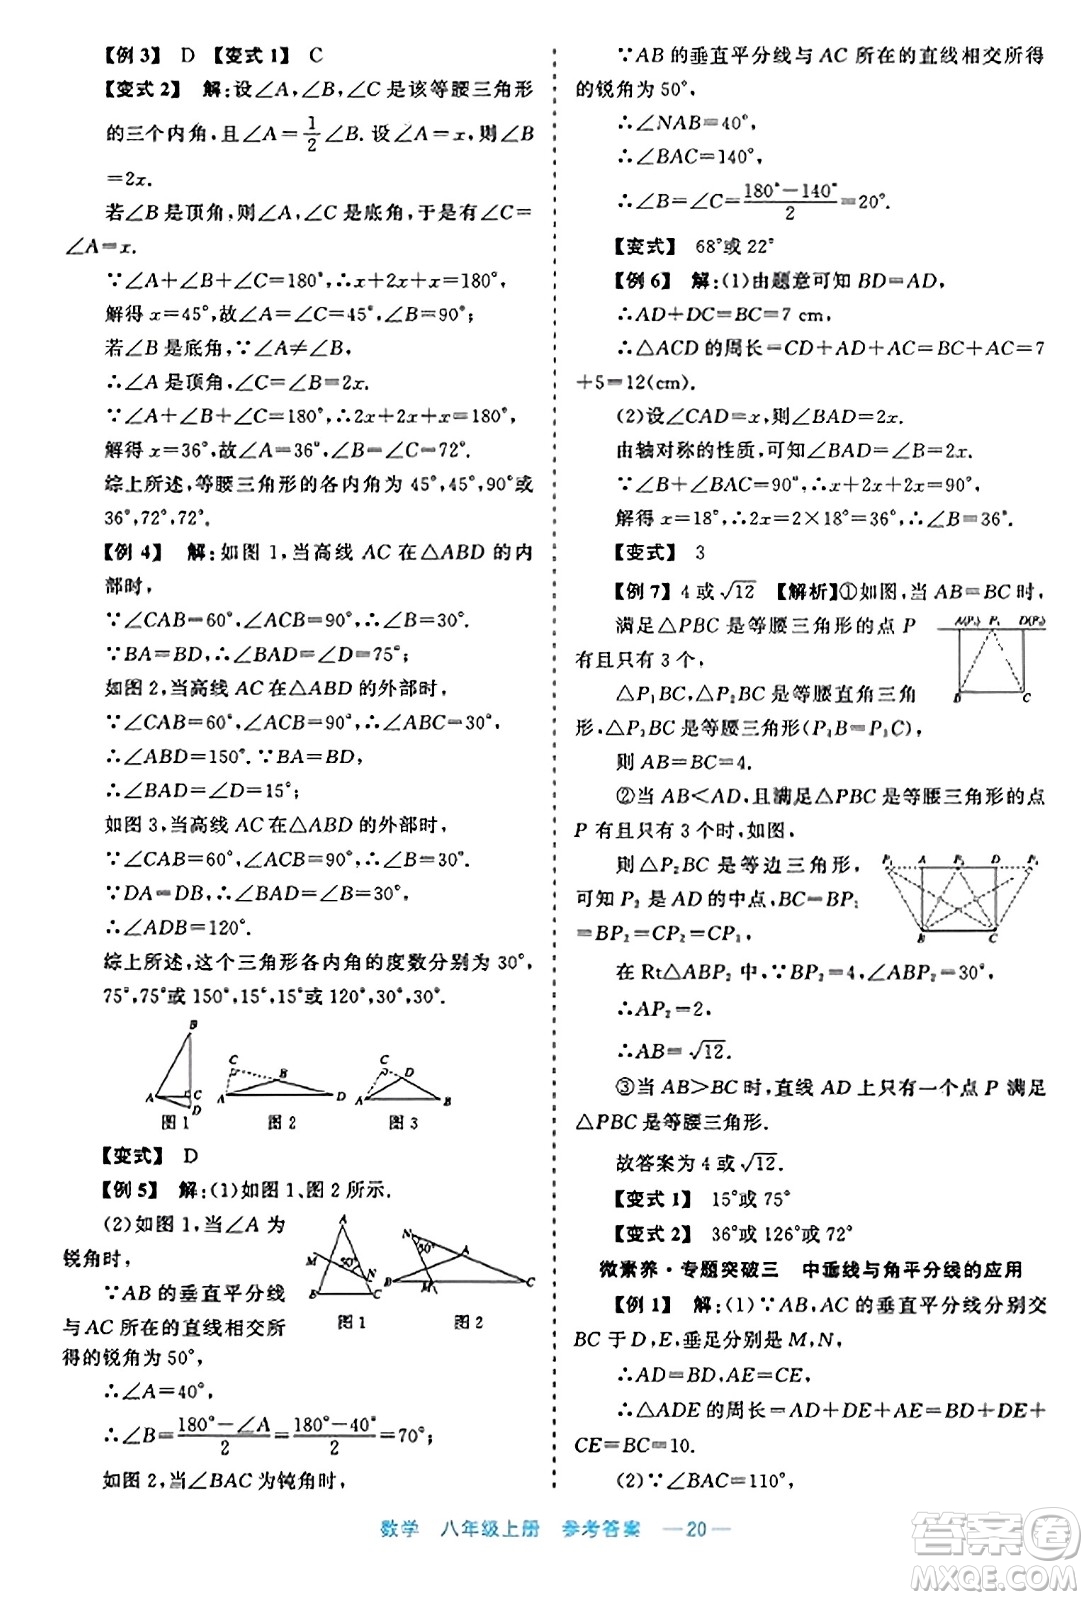 【例3】 D 【变式1】 C
【变式2】 解:设∠A,∠B,∠C是该等腰三角形
的三个内角,且∠A=1/2∠B.设∠A=x,则∠B
=2x.
若∠B是顶角,则∠A,∠C是底角,于是有∠C=
∠A=x.
∵∠A+∠B+∠C=180°,∴x+2x+x=180°,
解得x=45°,故∠A=∠C=45°,∠B=90°;
若∠B是底角,∵∠A≠∠B,
∴∠A是顶角,∠C=∠B=2x.
∵∠A+∠B+∠C=180°,∴2x+2x+x=180°,
解得x=36°,故∠A=36°,∠B=∠C=72°.
综上所述,等腰三角形的各内角为45°,45°,90°或
36°,72°,72°.
【例4】 解:如图1,当高线AC在△ABD的内
部时,
∵∠CAB=60°,∠ACB=90°,∴∠B=30°.
∵BA=BD,∴∠BAD=∠D=75°;
如图2,当高线AC在△ABD的外部时,
∵∠CAB=60°,∠ACB=90°,∴∠ABC=30°.
∴∠ABD=150°.∵BA=BD,
∴∠BAD=∠D=15°;
如图3,当高线AC在△ABD的外部时,
∵∠CAB=60°,∠ACB=90°,∴∠B=30°.
∵DA=DB,∴∠DAB=∠B=30°,
∴∠ADB=120°.
综上所述,这个三角形各内角的度数分别为30°,
75°,75°或150°,15°,15°或120°,30°,30°.
B
A
C
D
图1
C
B
A
D
图2
C
D
A
B
图3
【变式】 D
【例5】 解:(1)如图1、图2所示.
(2)如图1,当∠A为
锐角时,
∵AB的垂直平分线
与AC所在的直线相交所
得的锐角为50°,
A
M
50°
N
B
C
图1
N
50°
A
B
M
C
图2
∴∠A=40°,
∴∠B=180°-∠A/2=180°-40°/2=70°;
如图2,当∠BAC为钝角时,
∵AB的垂直平分线与AC所在的直线相交所得
的锐角为50°,
∴∠NAB=40°,
∴∠BAC=140°,
∴∠B=∠C=180°-140°/2=20°.
【变式】 68°或22°
【例6】 解:(1)由题意可知BD=AD,
∴AD+DC=BC=7 cm,
∴△ACD的周长=CD+AD+AC=BC+AC=7
+5=12(cm).
(2)设∠CAD=x,则∠BAD=2x.
由轴对称的性质,可知∠BAD=∠B=2x.
∵∠B+∠BAC=90°,∴x+2x+2x=90°,
解得x=18°,∴2x=2×18°=36°,∴∠B=36°.
【变式】 3
【例7】 4或√12 【解析】①如图,当AB=BC时,
满足△PBC是等腰三角形的点P
有且只有3个,
△P₁BC,△P₂BC是等腰直角三角
形,△P₃BC是等腰三角形(P₃B=P₃C),
则AB=BC=4.
②当AB<AD,且满足△PBC是等腰三角形的点
P有且只有3个时,如图,
则△P₂BC是等边三角形,
可知P₂是AD的中点,BC=BP₁
=BP₂=CP₂=CP₃,
在Rt△ABP₂中,∵BP₂=4,∠ABP₂=30°,
∴AP₂=2,
∴AB=√12.
③当AB>BC时,直线AD上只有一个点P满足
△PBC是等腰三角形.
故答案为4或√12.
【变式1】 15°或75°
【变式2】 36°或126°或72°
微素养·专题突破三 中垂线与角平分线的应用
【例1】 解:(1)∵AB,AC的垂直平分线分别交
BC于D,E,垂足分别是M,N,
∴AD=BD,AE=CE,
∴△ADE的周长=AD+DE+AE=BD+DE+
CE=BC=10.
(2)∵∠BAC=110°,
数学 八年级上册 参考答案 —20—
答案圈
MXQE.COM